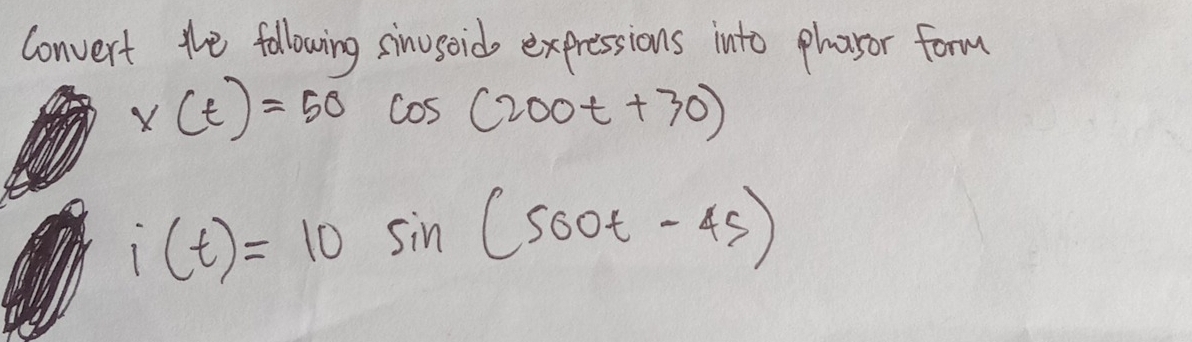 Convert the following sinusoid expressions into phasor form
v(t) = 50 cos (200t + 30)
i(t) = 10 sin (500t - 45)